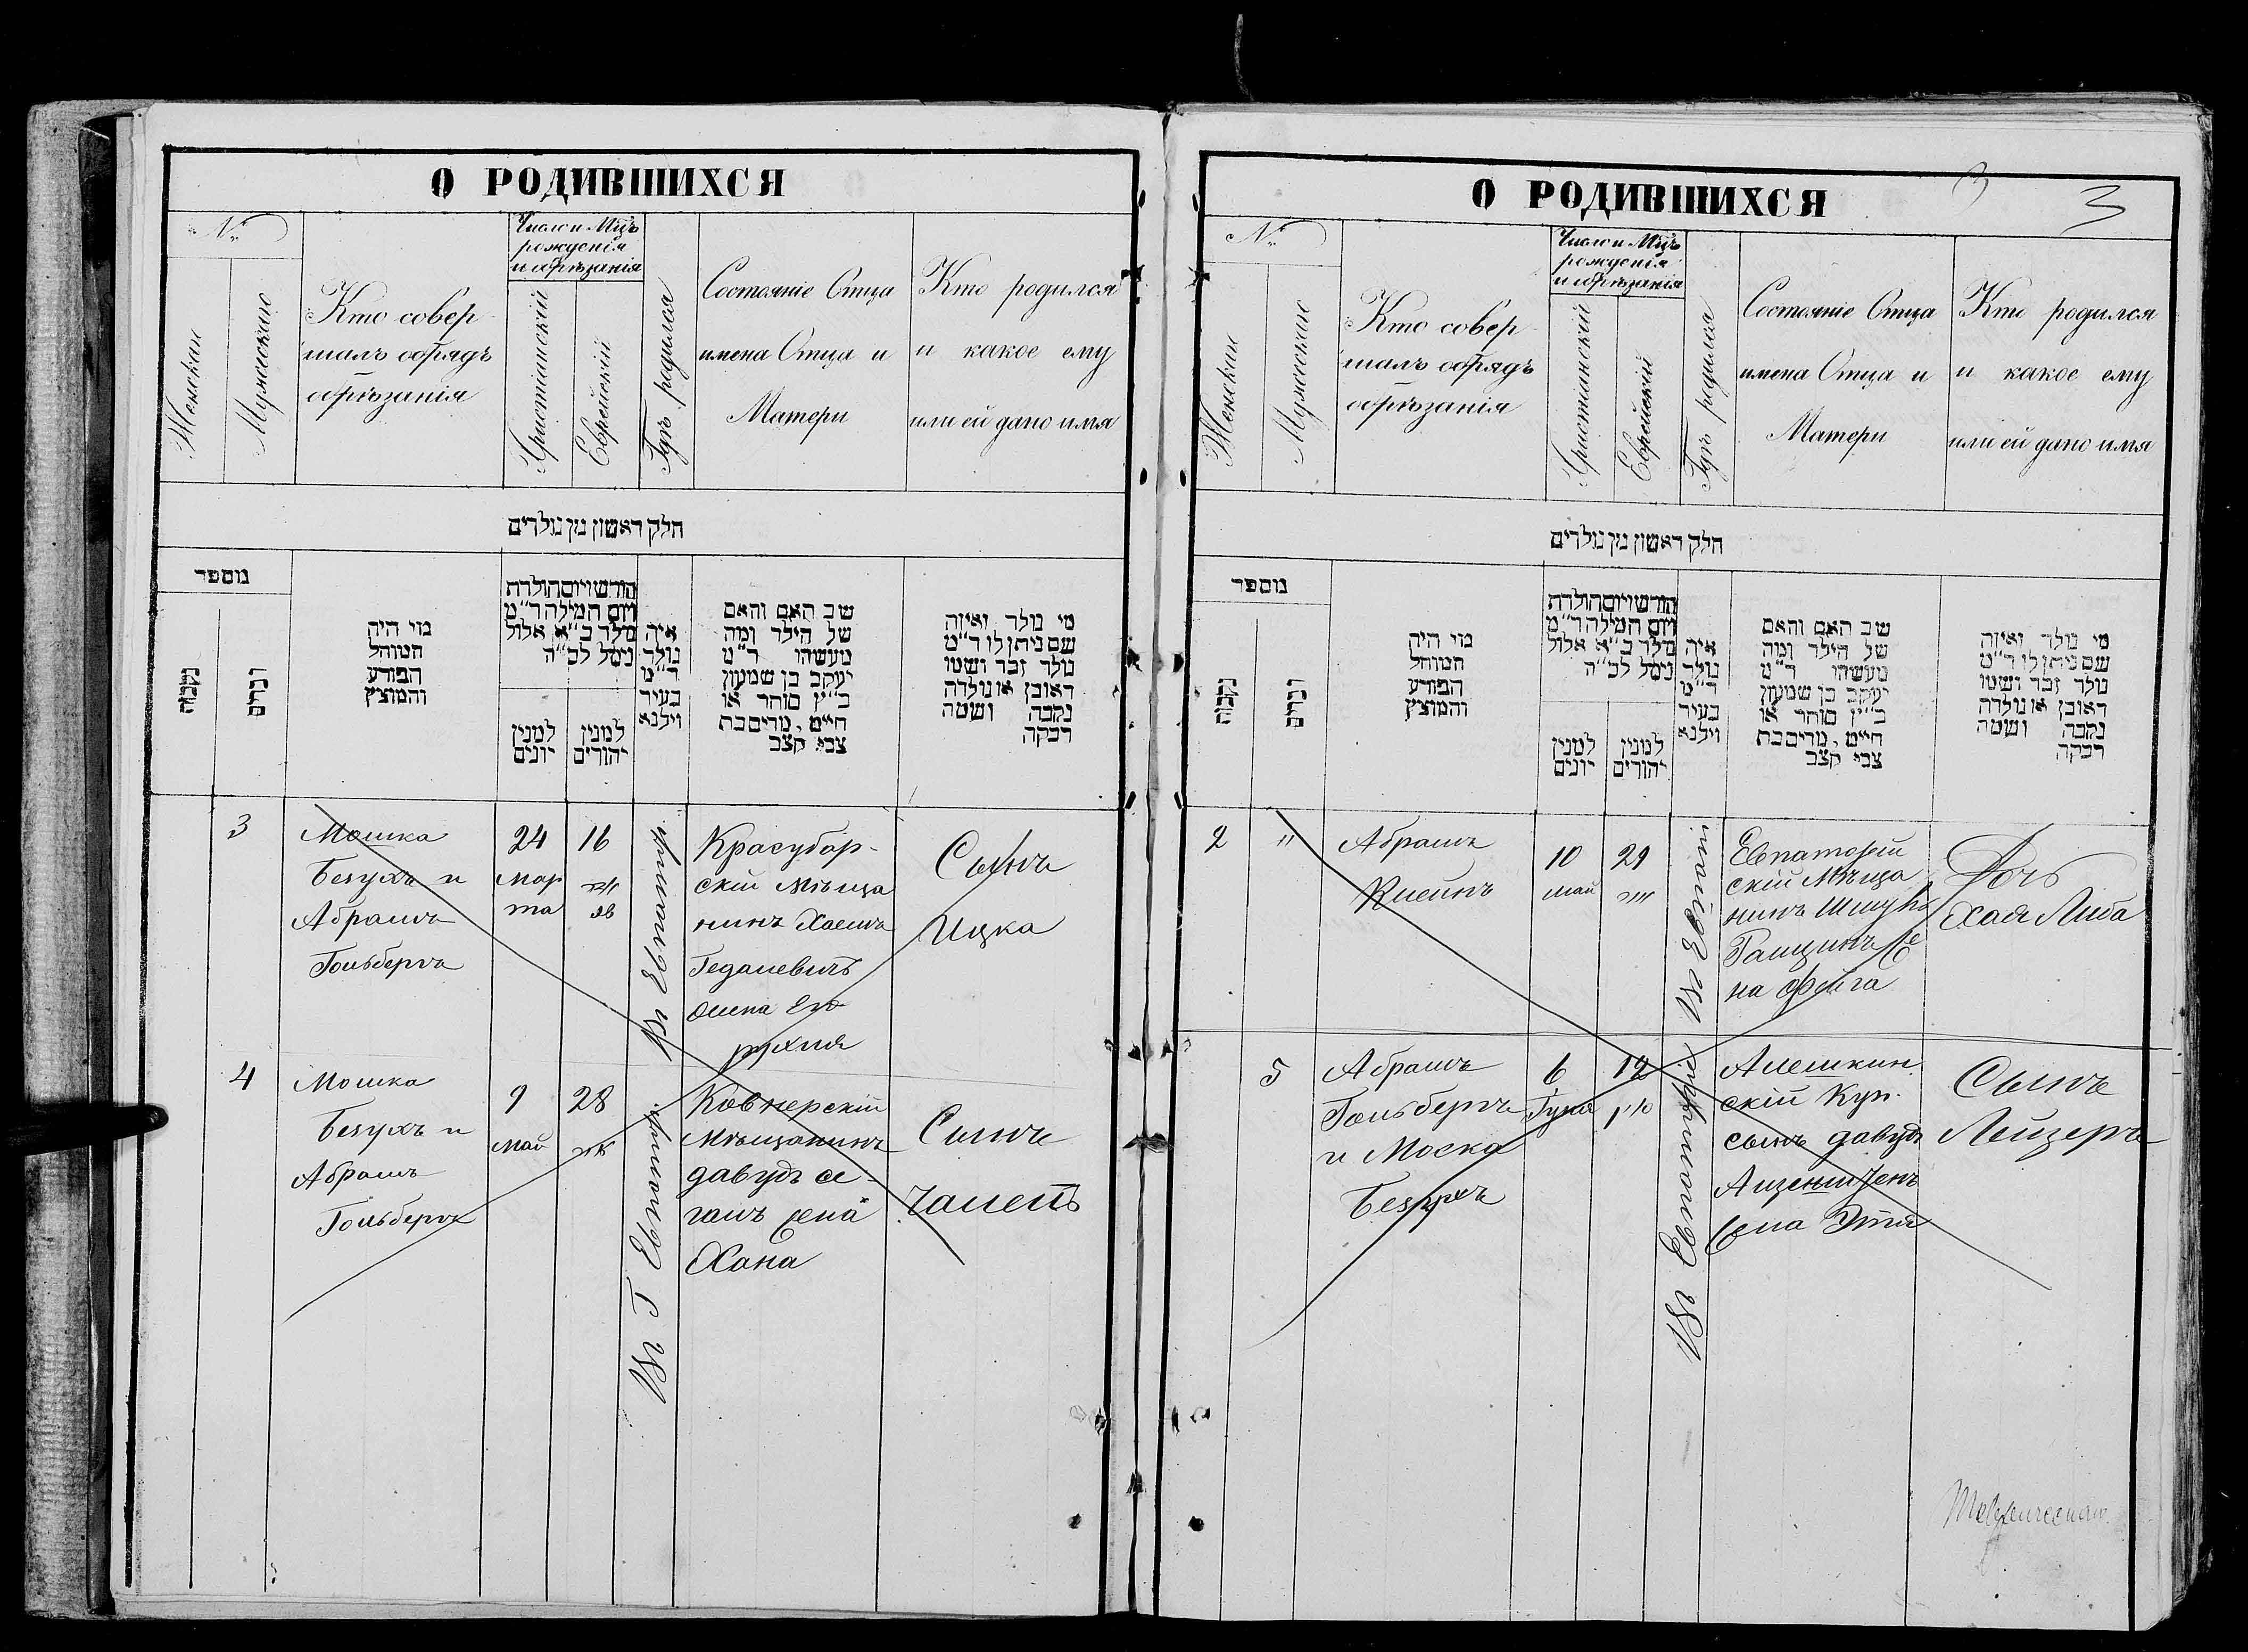 О РОДИВШИХСЯ
№
Женскаи
Мужескаи
Кто совер-
шалъ обрядъ
обрѣзанія
Число и Мцъ
рожденія
и обрѣзанія
Христіанскій
Еврейскій
Гдѣ родился
Состояніе Отца
имена Отца и
Матери
Кто родился
и какое ему
или ей дано имя
חלק ראשון מן נולדים
מספר
נקבות
זכרים
מי היה
המוהל
הפורע
והמוצץ
חודש ויום הולדת
ויום המילה ד״מ
נולד כ״א אלול
נימל לכ״ה
למנין
יונים
למנין
יהודים
איה
נולד
ד״מ
בעיר
וילנא
שב האם והאם
של הילד ומה
מעשהו ד״מ
יעקב בן שמעון
כ״ץ סוחר או
חיים, מרים בת
צבי קצב
מי נולד ואיזה
שם ניתן לו ד״מ
נולד זכר ושמו
ראובן או נולדה
נקבה ושמה
רבקה
3
Мошка
Безухъ и
Абрамъ
Гольберъ
24
мар
та
16
Въ Евпатор.
Красубор-
скій мѣща
нинъ Хаемъ
Гедалевичъ
Сынъ
Ицка
4
Мошка
Безухъ и
Абрамъ
Гольберъ
9
май
28
Въ Г Евпатор.
Ковнерскій
Мѣщанинъ
давудъ се-
Хана
Сынъ
О РОДИВШИХСЯ
3
3
№
Женскаи
Мужескаи
Кто совер-
шалъ обрядъ
обрѣзанія
Число и Мцъ
рожденія
и обрѣзанія
Христіанскій
Еврейскій
Гдѣ родился
Состояніе Отца
имена Отца и
Матери
Кто родился
и какое ему
или ей дано имя
חלק ראשון מן נולדים
מספר
נקבות
זכרים
מי היה
המוהל
הפורע
והמוצץ
חודש ויום הולדת
ויום המילה ד״מ
נולד כ״א אלול
נימל לכ״ה
למנין
יונים
למנין
יהודים
איה
נולד
ד״מ
בעיר
וילנא
שב האם והאם
של הילד ומה
מעשהו ד״מ
יעקב בן שמעון
כ״ץ סוחר או
חיים, מרים בת
צבי קצב
מי נולד ואיזה
שם ניתן לו ד״מ
נולד זכר ושמו
ראובן או נולדה
נקבה ושמה
רבקה
2
"
Абрамъ
Клейнъ
10
май
29
Въ Евпат
Евпаторій
скій Мѣща
нинъ
на Фейга
Дочь
Хая Либа
5
Абрамъ
Гольберъ
и Моска
Безухъ
6
12
Въ Евпатор
Алешкин
скій Куп.
сынъ давудъ
Этля
Сынъ
Лейзеръ